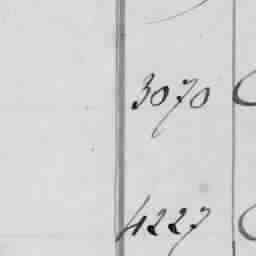 3070
4227